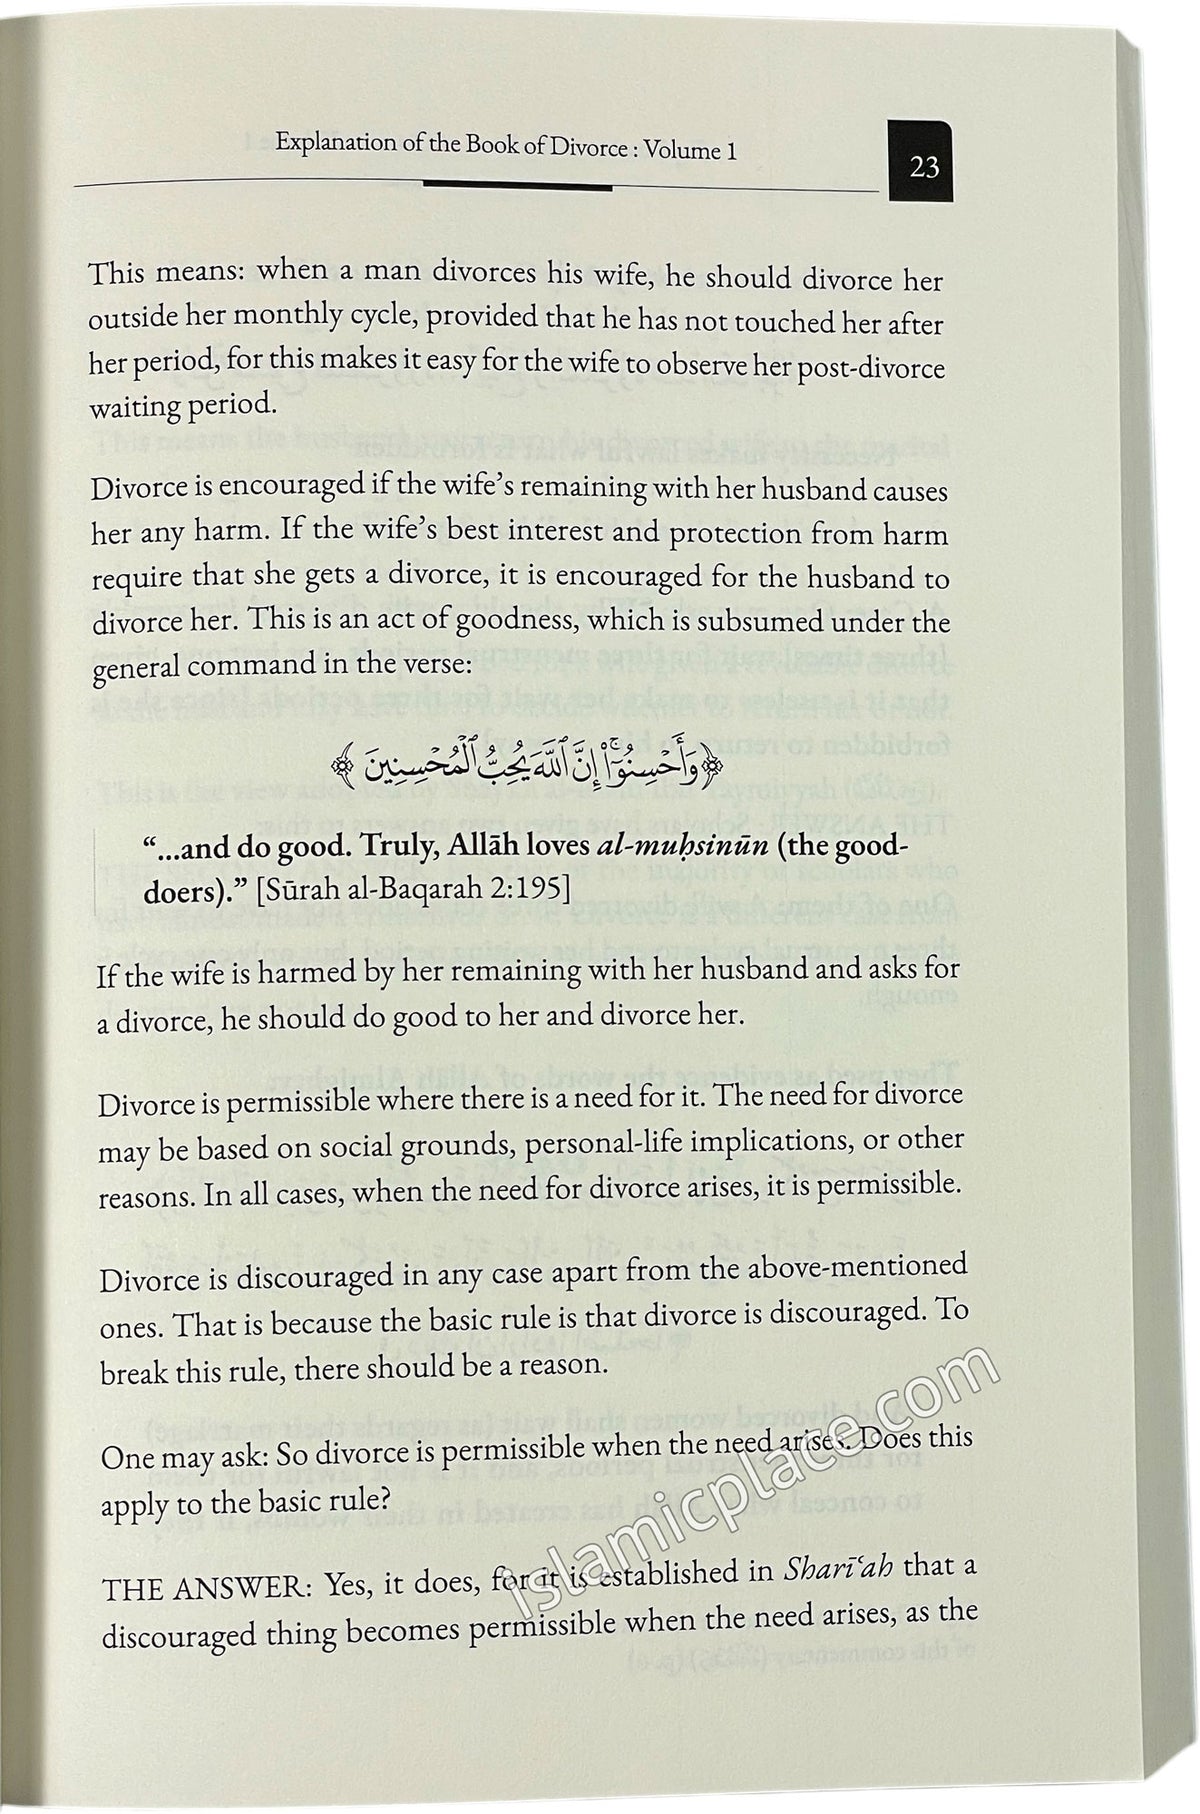 Explanation of the Book of Divorce : Volume 1
23
This means: when a man divorces his wife, he should divorce her
outside her monthly cycle, provided that he has not touched her after
her period, for this makes it easy for the wife to observe her post-divorce
waiting period.
Divorce is encouraged if the wife's remaining with her husband causes
her any harm. If the wife's best interest and protection from harm
require that she gets a divorce, it is encouraged for the husband to
divorce her. This is an act of goodness, which is subsumed under the
general command in the verse:
﴿وَأَحْسِنُوٓا۟ ۛ إِنَّ ٱللَّهَ يُحِبُّ ٱلْمُحْسِنِينَ﴾
“...and do good. Truly, Allāh loves al-muḥsinūn (the good-
doers).” [Sūrah al-Baqarah 2:195]
If the wife is harmed by her remaining with her husband and asks for
a divorce, he should do good to her and divorce her.
Divorce is permissible where there is a need for it. The need for divorce
may be based on social grounds, personal-life implications, or other
reasons. In all cases, when the need for divorce arises, it is permissible.
Divorce is discouraged in any case apart from the above-mentioned
ones. That is because the basic rule is that divorce is discouraged. To
break this rule, there should be a reason.
One may ask: So divorce is permissible when the need arises. Does this
apply to the basic rule?
THE ANSWER: Yes, it does, for it is established in Sharīʿah that a
discouraged thing becomes permissible when the need arises, as the
islamicplace.com